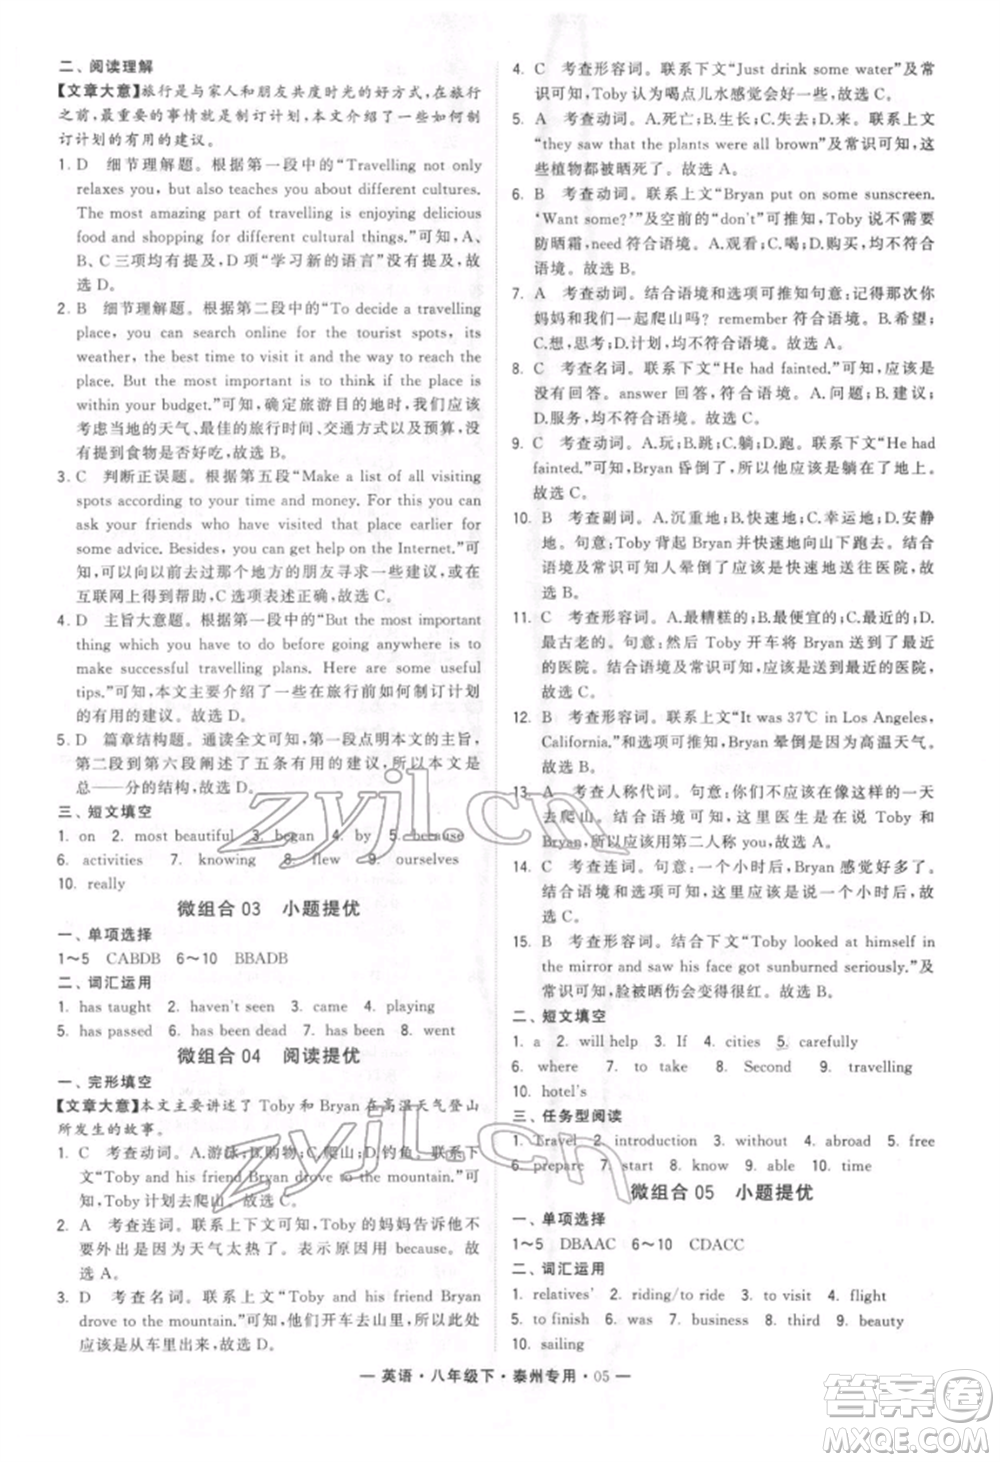 二、阅读理解
【文章大意】旅行是与家人和朋友共度时光的好方式,在旅行
之前,最重要的事情就是制订计划,本文介绍了一些如何制
订计划的有用的建议。
1. D 细节理解题。根据第一段中的“Travelling not only
relaxes you, but also teaches you about different cultures.
The most amazing part of travelling is enjoying delicious
food and shopping for different cultural things.”可知,A、
B、C三项均有提及,D项“学习新的语言”未提及。故
选D。
2. B 细节理解题。根据第二段中的“To decide a travelling
place, you can search online for the tourist spots, its
weather, the best time to visit it and the way to reach the
place. But the most important is to think if the place is
within your budget.”可知,确定旅游目的地时,我们应该
考虑当地的天气、最佳的旅行时间、交通方式以及预算,没
有提到食物是否好吃,故选B。
3. C 判断正误题。根据第五段“Make a list of all visiting
spots according to your time and money. For this, you can
ask your friends who have visited that place earlier for
some advice. Besides, you can get help on the Internet.”可
知,可以向以前去过那个地方的朋友寻求一些建议,或者在
互联网上得到帮助,C选项表述正确。故选C。
4. D 主旨大意题。根据第一段中的“But the most important
thing you have to do before going anywhere is to
make successful travelling plans. Here are some useful
tips.”可知,本文主要介绍了一些在旅行前如何制订计划
的有用的建议。故选D。
5. D 篇章结构题。通读全文可知,第一段点明本文的主旨,
第二段到第六段阐述了五条有用的建议,所以本文是
总——分的结构。故选D。
三、短文填空
1. on 2. most beautiful 3. began 4. by 5. because
6. activities 7. knowing 8. flew 9. ourselves
10. really
微组合 03 小题提优
一、单项选择
1～5 CABDB 6～10 BBADB
二、词汇运用
1. has taught 2. haven't seen 3. came 4. playing
5. has passed 6. has been dead 7. has been 8. went
微组合 04 阅读提优
一、完形填空
【文章大意】本文主要讲述了Toby和Bryan在高温天气登山
所发生的故事。
1. C 考查动词。A.游泳;B.购物;C.爬山;D.钓鱼。联系下
文“Toby and his friend Bryan drove to the mountain.”可
知,Toby计划去爬山。故选C。
2. A 考查连词。联系上下文可知,Toby的妈妈告诉他不
要外出是因为天气太热了。表示原因用because。故
选A。
3. D 考查名词。联系下文“Toby and his friend Bryan
drove to the mountain.”可知,他们开车去爬山,所以此处
应该是从车里出来。故选D。
4. C 考查形容词。联系下文“Just drink some water”及常
识可知,Toby认为喝点儿水感觉会好一些。故选C。
5. A 考查动词。A.死亡;B.生长;C.失去;D.来。联系上文
“they saw that the plants were all brown”及常识可知,这
些植物都被晒死了。故选A。
6. B 考查动词。联系上文“Bryan put on some sunscreen.
‘Want some?’”及空前的“don't”可推知,Toby说不需要
防晒霜,need符合语境。A.观看;C.喝;D.购买,均不符合
语境。故选B。
7. A 考查动词。结合语境和选项可推知句意:记得那次你
妈妈和我们一起爬山吗? remember符合语境。B.希望;
C.想,思考;D.计划,均不符合语境。故选A。
8. C 考查名词。联系下文“He had fainted.”可知,应该是
没有回答。answer回答,符合语境。A.原因;B.建议;
D.服务,均不符合语境。故选C。
9. C 考查动词。A.玩;B.跳;C.躺;D.跑。联系下文“He had
fainted.”可知,Bryan昏倒了,所以应该是躺在了地上。
故选C。
10. B 考查副词。A.沉重地;B.快速地;C.幸运地;D.安静
地。句意:Toby背起Bryan并快速地向山下跑去。结合
语境及常识可知人晕倒了,应该是快速地送去医院,故
选B。
11. C 考查形容词。A.最糟糕的;B.最便宜的;C.最近的;D.
最古老的。句意:然后Toby开车将Bryan送到了最近
的医院。结合语境及常识可知,应该是送到最近的医院,
故选C。
12. B 考查形容词。联系上文“It was 37℃ in Los Angeles,
California.”和选项可推知,Bryan晕倒是因为高温天气。
故选B。
13. A 考查人称代词。句意:幸运的是,你在像这样的一天
去爬山没有晒死。结合语境可知,这里医生是在对
Bryan说话,所以应该用第二人称you。故选A。
14. C 考查连词。句意:一个小时后,Bryan感觉好多了。
结合语境和选项可知,这里应该表示在一个小时之后,
故选C。
15. B 考查形容词。结合下文“Toby looked at himself in
the mirror and saw his face got sunburned seriously.”及
常识可知,脸被晒伤会变得很红。故选B。
二、短文填空
1. a 2. and 3. If 4. cities 5. carefully
6. where 7. to take 8. Second 9. travelling
10. hotel's
三、任务型阅读
1. Travel 2. introduction 3. without 4. abroad 5. free
6. prepare 7. start 8. know 9. able 10. time
微组合 05 小题提优
一、单项选择
1～5 DBAAC 6～10 CDACC
二、词汇运用
1. relatives' 2. riding/to ride 3. to visit 4. flight
5. to finish 6. was 7. business 8. third 9. beauty
10. sailing
— 英语·八年级下·泰州专用·05 —
zyjl.cn
zyjl.cn
答案圈
MXQE.COM